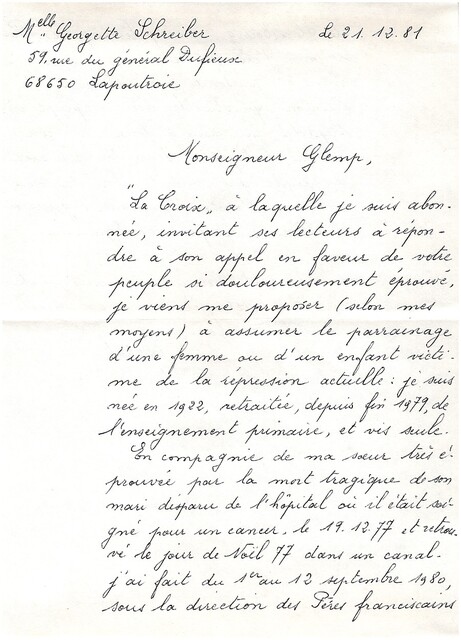 Melle Georgette Schreiber
Le 21.12.81
59, rue du général Dufieux
68650 Lapoutroie
Monseigneur Glemp,
"La Croix", à laquelle je suis abon-
née, invitant ses lecteurs à répon-
dre à son appel en faveur de votre
peuple si douloureusement éprouvé,
je viens me proposer (selon mes
moyens) à assumer le parrainage
d'une femme ou d'un enfant victi-
me de la répression actuelle : je suis
née en 1922, retraitée, depuis fin 1979, de
l'enseignement primaire, et vis seule.
En compagnie de ma sœur très é-
prouvée par la mort tragique de son
mari disparu de l'hôpital où il était soi-
gné pour un cancer, le 19.12.77 et retrou-
vé le jour de Noël 77 dans un canal.
j'ai fait du 1er au 12 septembre 1980,
sous la direction des Pères franciscains